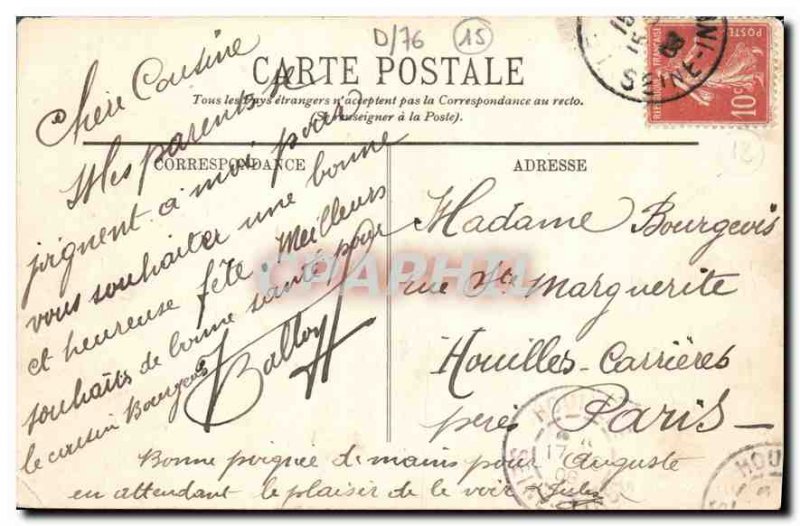 D/76
15
CARTE POSTALE
Tous les Pays étrangers n'acceptent pas la Correspondance au recto.
(Se renseigner à la Poste).
CORRESPONDANCE
Chère Cousine
Mes parents se
joignent à moi pour
vous souhaiter une bonne
et heureuse fête. Meilleurs
souhaits de bonne santé pour
le cousin Bourgeois
Balloy
ADRESSE
Madame Bourgeois
rue Ste Marguerite
Houilles-Carrières
près Paris
Bonne poignée de mains pour Auguste
en attendant le plaisir de le voir Jules
POSTES
10c
SEINE-IN
HOUILLES
17
HOU
12
CPAPHIL